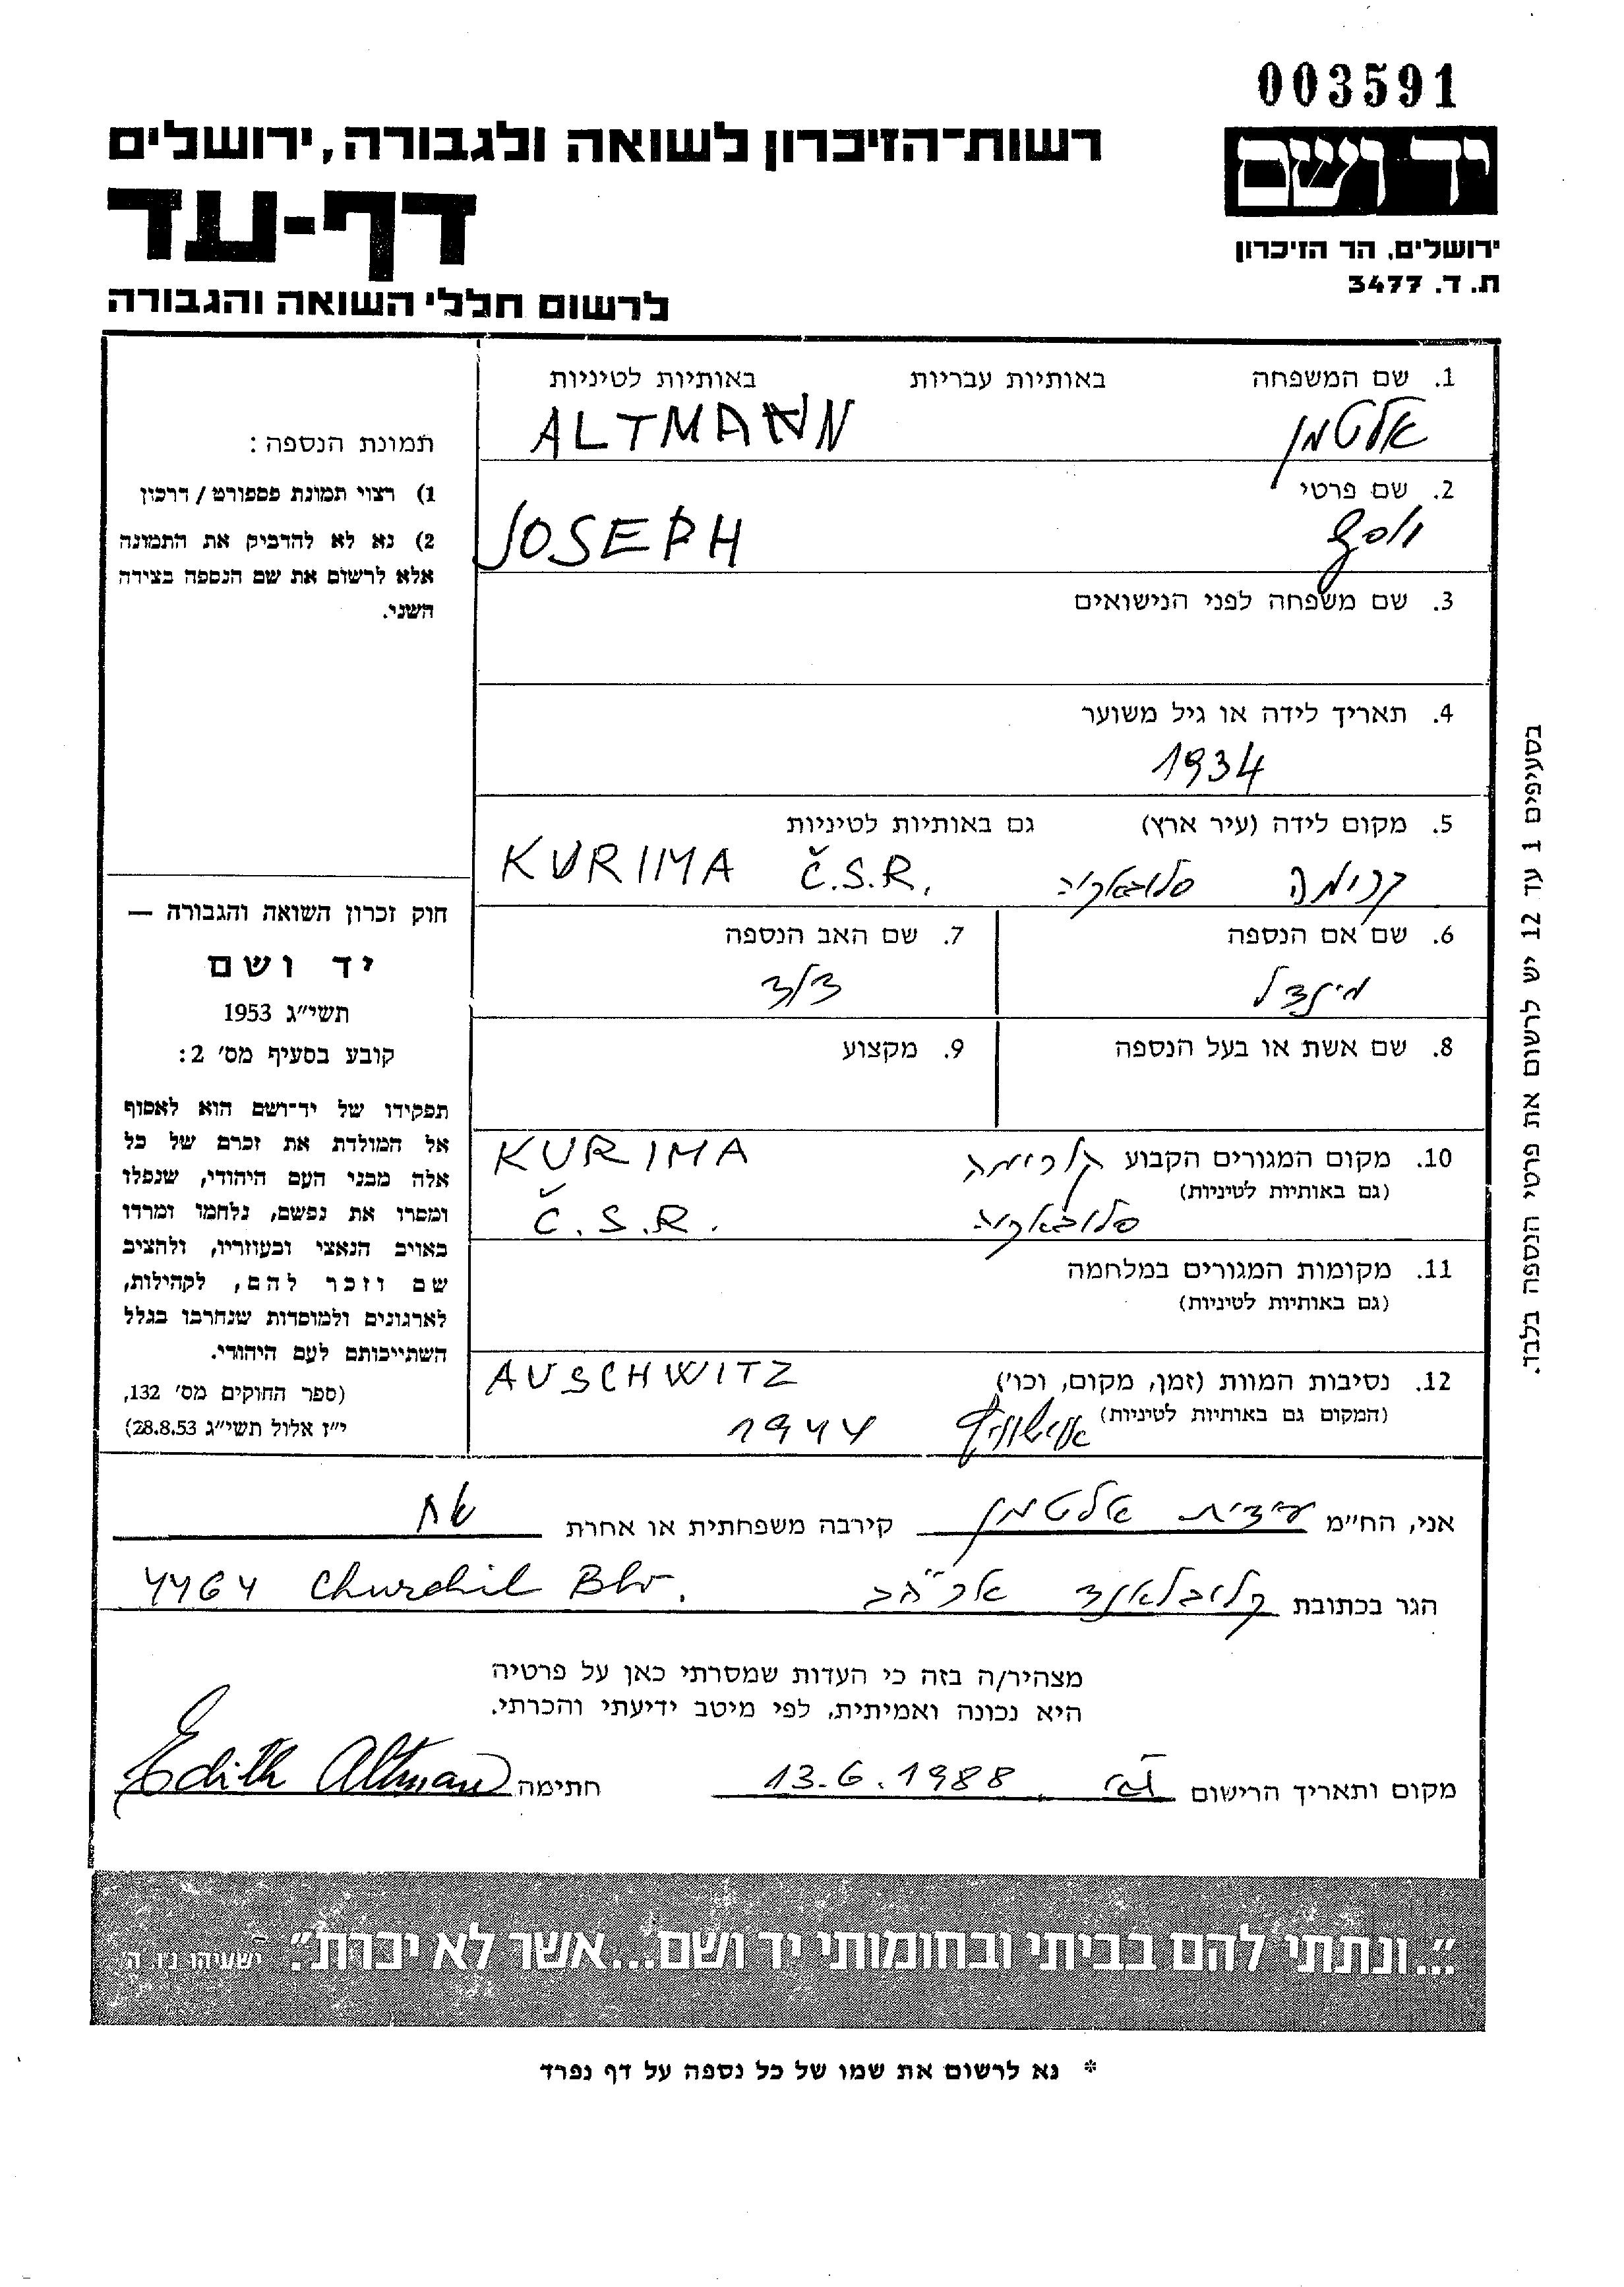 003591
יד ושם
ירושלים, הר הזיכרון
ת. ד. 3477
רשות־הזיכרון לשואה ולגבורה, ירושלים
דף-עד
לרשום חללי השואה והגבורה
1. שם המשפחה באותיות עבריות באותיות לטיניות
אלטמן ALTMANN
2. שם פרטי
יוסף JOSEPH
3. שם משפחה לפני הנישואים
4. תאריך לידה או גיל משוער
1934
5. מקום לידה (עיר ארץ) גם באותיות לטיניות
קרימה סלובאקיה KURIMA Č.S.R.
6. שם אם הנספה 7. שם האב הנספה
מינדל דוד
8. שם אשת או בעל הנספה 9. מקצוע
10. מקום המגורים הקבוע קורימה KURIMA
(גם באותיות לטיניות)
סלובאקיה Č.S.R.
11. מקומות המגורים במלחמה
(גם באותיות לטיניות)
12. נסיבות המוות (זמן, מקום, וכו') AUSCHWITZ
(המקום גם באותיות לטיניות) אושוויץ 1944
תמונת הנספה:
1) רצוי תמונת פספורט / דרכון
2) נא לא להדביק את התמונה
אלא לרשום את שם הנספה בצידה
השני.
חוק זכרון השואה והגבורה —
יד ושם
תשי״ג 1953
קובע בסעיף מס׳ 2:
תפקידו של יד־ושם הוא לאסוף
אל המולדת את זכרם של כל
אלה מבני העם היהודי, שנפלו
ומסרו את נפשם, נלחמו ומרדו
באויב הנאצי ובעוזריו, ולהציב
שם וזכר להם, לקהילות,
לארגונים ולמוסדות שנחרבו בגלל
השתייכותם לעם היהודי.
(ספר החוקים מס׳ 132,
י״ז אלול תשי״ג 28.8.53)
בסעיפים 1 עד 12 יש לרשום את פרטי הנספה בלבד.
אני, הח״מ עידית אלטמן קירבה משפחתית או אחרת אח
הגר בכתובת קליבלאנד ארה״ב 4464 Churchil Blv.
מצהיר/ה בזה כי העדות שמסרתי כאן על פרטיה
היא נכונה ואמיתית, לפי מיטב ידיעתי והכרתי.
מקום ותאריך הרישום 13.6.1988 חתימה Edith Altman
״...ונתתי להם בביתי ובחומותי יד ושם...אשר לא יכרת״. ישעיהו נ״ו, ה׳
* נא לרשום את שמו של כל נספה על דף נפרד